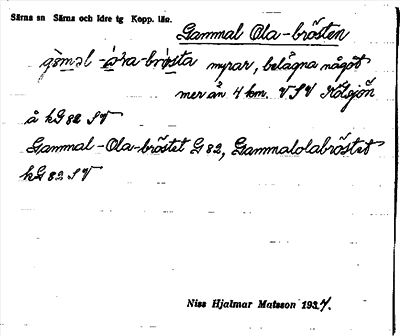 Särna sn Särna och Idre tg Kopp. län.
Gammal Ola-brösten
myrar, belägna något
mer än 4 km. VSV Kölsjön
å kG 82 SV
Gammal-Ola-bröstet G 82, Gammalolabröstet
kG 82 SV
Niss Hjalmar Matsson 1934.